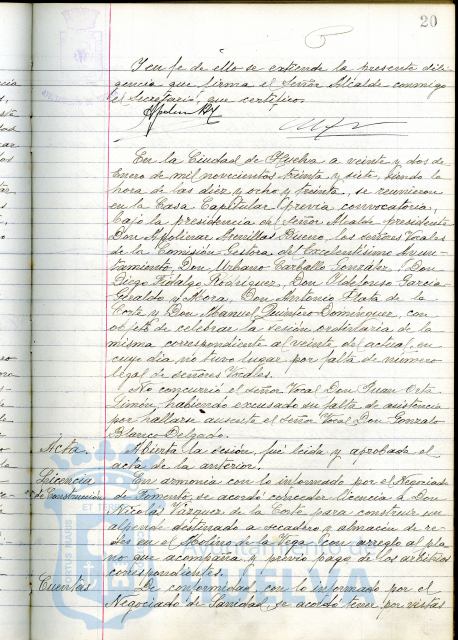 20
Y en fe de ello se extiende la presente dili-
gencia que firma el Señor Alcalde conmigo
el Secretario, que certifico.
En la Ciudad de Huelva a veinte y dos de
Enero de mil novecientos treinta y siete, siendo la
hora de las diez y ocho y treinta, se reunieron
en la Casa Capitular previa convocatoria,
bajo la presidencia del Señor Alcalde presidente
Don Apolinar Arenillas Bueno, los señores Vocales
de la Comisión Gestora del Excelentísimo Ayun-
tamiento, Don Urbano Carballo González, Don
Diego Fidalgo Rodríguez, Don Ildefonso García
Giraldo y Mora, Don Antonio Plata de la
Corte y Don Manuel Quintero Domínguez, con
objeto de celebrar la sesión ordinaria de la
misma correspondiente al veinte del actual, en
cuyo día no tuvo lugar por falta de número
legal de señores Vocales.
No concurrió el señor Vocal Don Juan Orta
Limón, habiendo excusado su falta de asistencia
por hallarse ausente el señor Vocal Don Gonzalo
Blanco Delgado.
Acta. Abierta la sesión, fué leida y aprobada el
acta de la anterior.
Licencia En armonia con lo informado por el Negociado
de Construcción de Fomento, se acordó conceder licencia a Don
Nicolás Vázquez de la Corte para construir un
alpende destinado a secadero y almacen de re-
des en el Molino de la Vega con arreglo al pla-
no que acompaña y previo pago de los arbitrios
correspondientes.
Cuentas De conformidad con lo informado por el
Negociado de Sanidad, se acordó tener por vistas